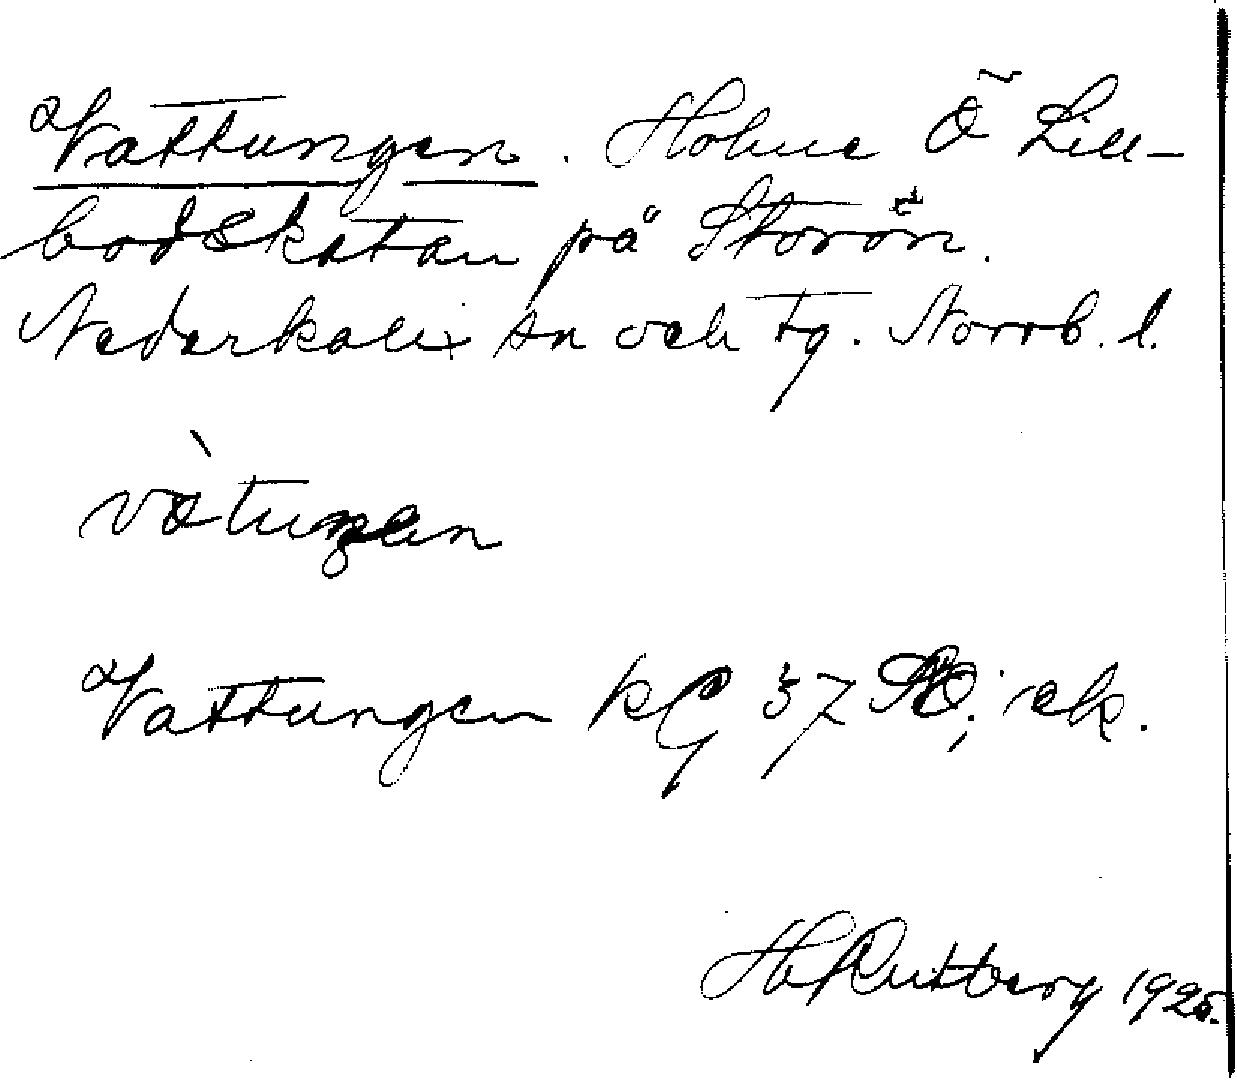 Vattungen. Holme Ö Lill-
bodskatan på Storön.
Nederkalix sn och tg. Norrb. l.
vàtuŋen
Vattungen kG 37 SO; ek.
H Rutberg 1925.